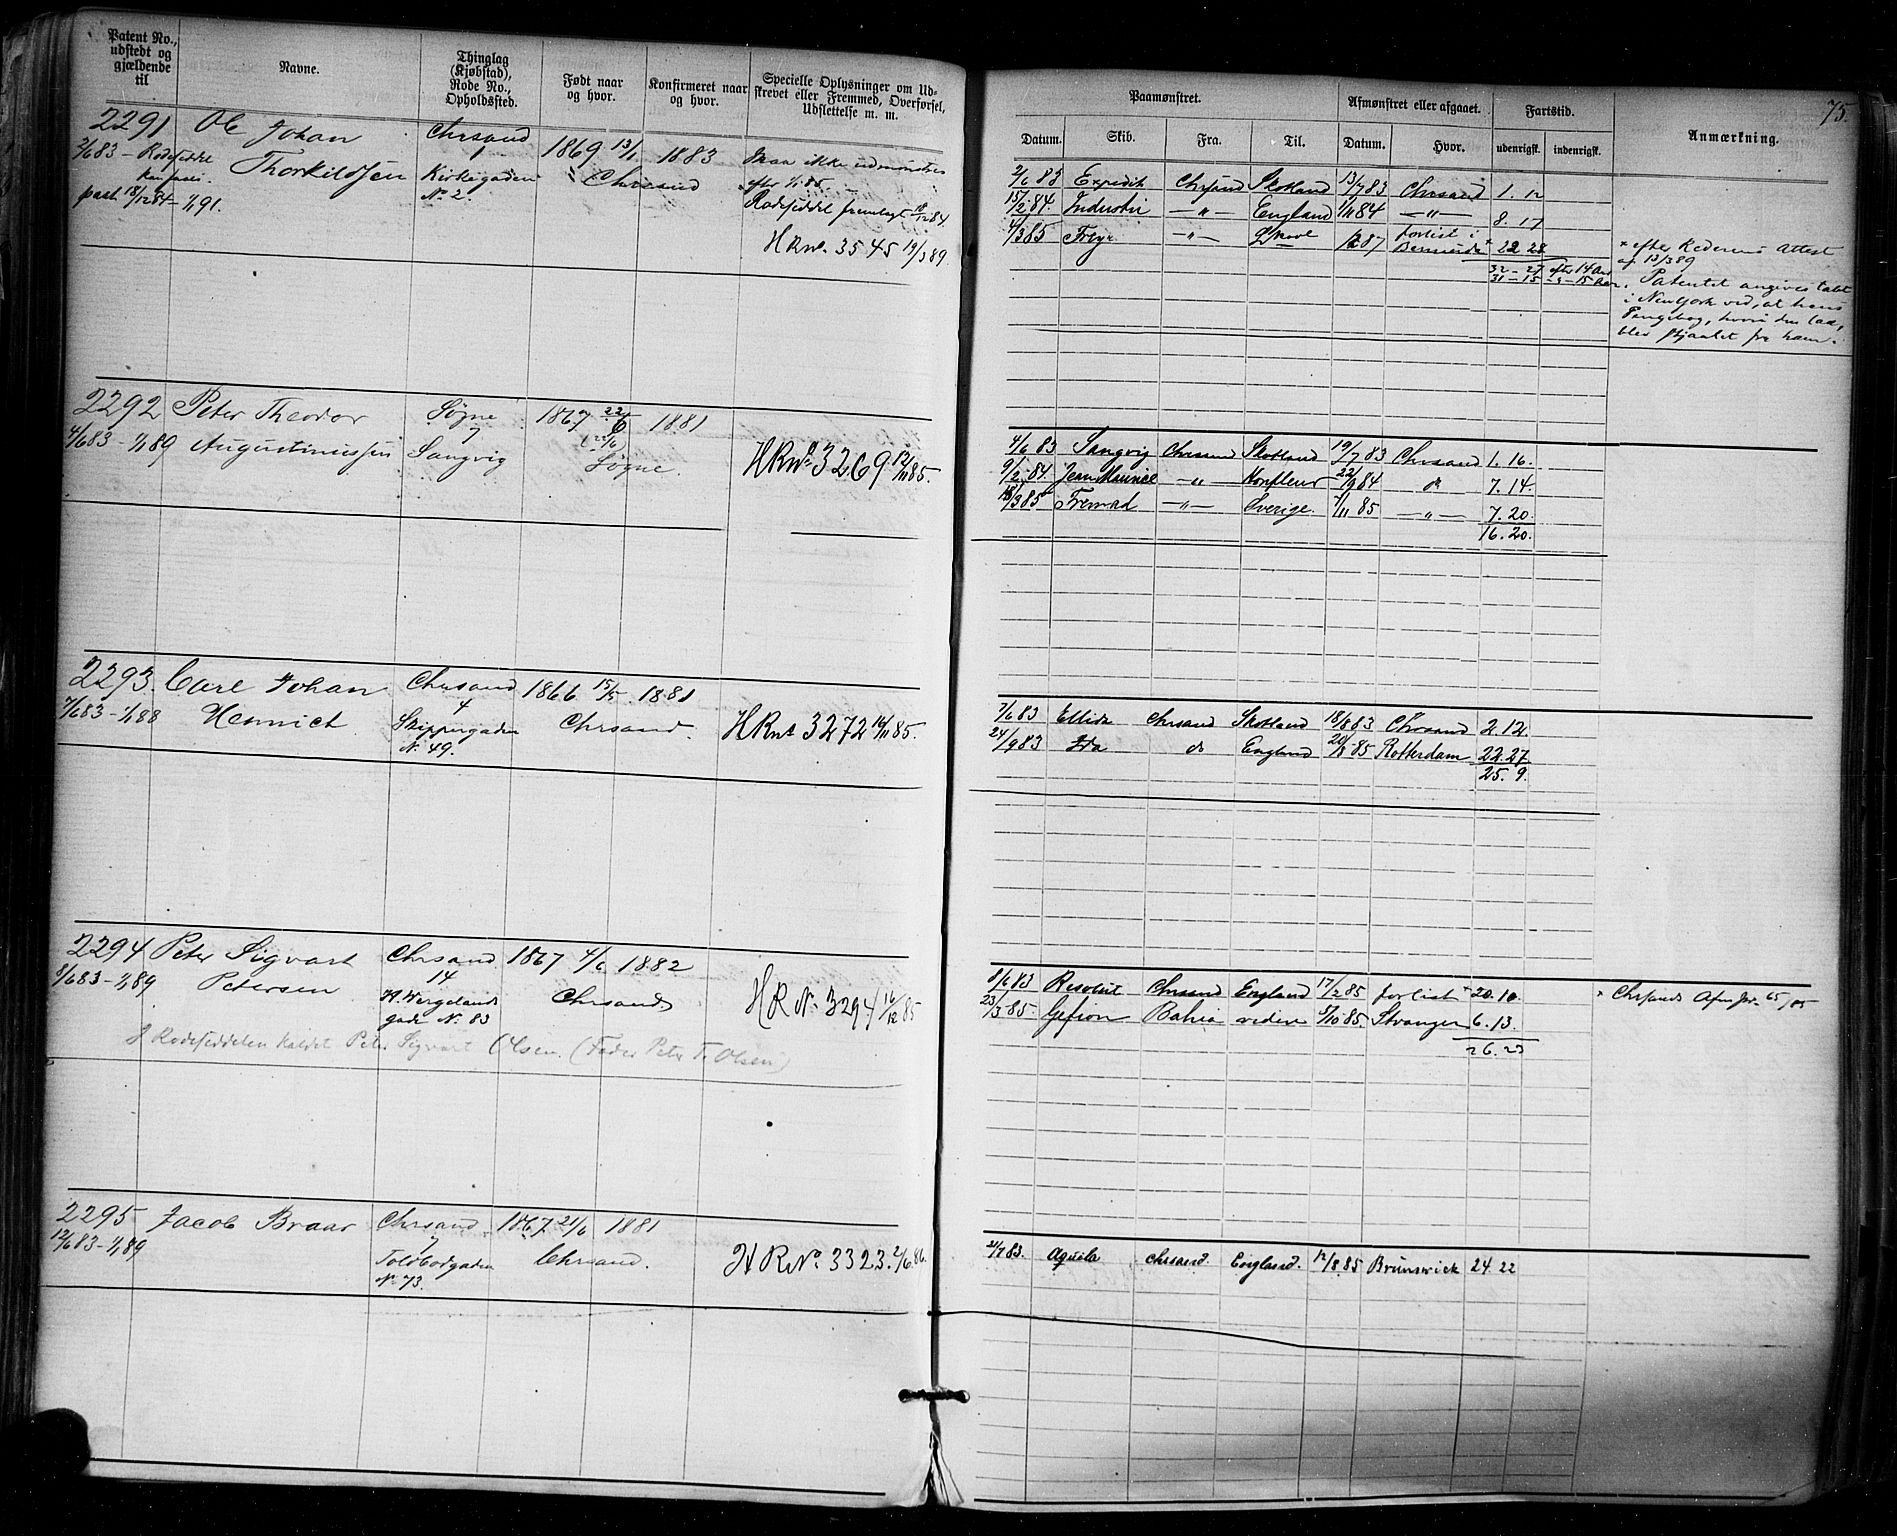 Patent No., udstedt og gjældende til | Navne. | Thinglag (Kjøbstad), Rode No., Opholdssted. | Født naar og hvor. | Konfirmeret naar og hvor. | Specielle Oplysninger om Udskrevet eller Fremmed, Overførsel, Udslettelse m. m.
2291 Ole Johan Chrsand 1869 13/1 1883 Maa ikke udmønstres
2/6 83 – Rodeseddel Thorkildsen 1 Chrsand efter 1/1 85.
Kirkegaden Rodeseddel fremlagt 18/12 84.
past. 18/12 84 – 1/1 91. No 2.
H R No. 3545 19/3 89
2292 Peter Theodor Søgne 1867 22/6 1881
4/6 83 – 1/1 89 Augustinussen 7 Søgne.
Langvig H R No 3269 12/11 85.
2293. Carl Johan Chrsand 1866 15/5 1881
7/6 83 – 1/1 88 Hennich 4 Chrsand. H R No 3272 14/11 85.
Skippergaden
N. 49.
2294 Peter Sigvart Chrsand 1867 4/6 1882
8/6 83 – 1/1 89 Petersen 14 Chrsand H R No. 3294 16/12 85
H. Wergelands
gade No. 83
I Rodeseddelen kaldet Peter Sigvart Olsen. (Fader Peter T. Olsen)
2295 Jacob Braar Chrsand 1867 21/6 1881
12/6 83 – 1/1 89 7 Chrsand. H R No. 3323. 2/6 86.
Toldbodgaden
No. 73.
75.
Paamønstret. | Afmønstret eller afgaaet. | Fartstid. | Anmærkning.
Datum. | Skib. | Fra. | Til. | Datum. | Hvor. | udenrigsk. | indenrigsk.
2/6 83 Expedit Chrsand Skotland 13/7 83 Chrsand 1. 12
15/2 84. Industri –"– England 1/11 84 –"– 8. 17
4/3 85 Freyr –"– Lpool 87 forlist i
Bermuda + 22 28
32 – 27 efter 14 Aar
31 – 15 –"– 15 Aar
+ efter Rederens Attest
af 13/3 89
Patentet angives tabt
i New York ved, at hans
Pengebog, hvori den laa,
blev stjaalet fra ham.
4/6 83 Langvig Chrsand Skotland 19/7 83 Chrsand 1. 16.
9/2 84. Jean Maurice –"– Honfleur 22/9 84 do 7. 14.
18/3 85 Fremad –"– Sverige. 7/11 85 –"– 7. 20.
16. 20.
7/6 83 Ellida Chrsand Skotland 18/8 83 Chrsand 2. 12.
24/9 83 Ida do England 20/8 85 Rotterdam 22. 27
25. 9.
8/6 83 Resolut Chrsand England 17/2 85 forlist + 20. 10.
+ Chrsands Afm. Jour. 65/85
23/3 85. Gefion Bahia videre 5/10 85. Stvanger 6. 13.
26. 23
21/7 83. Aquila Chrsand. England. 12/8 85 Brunswick 24. 22